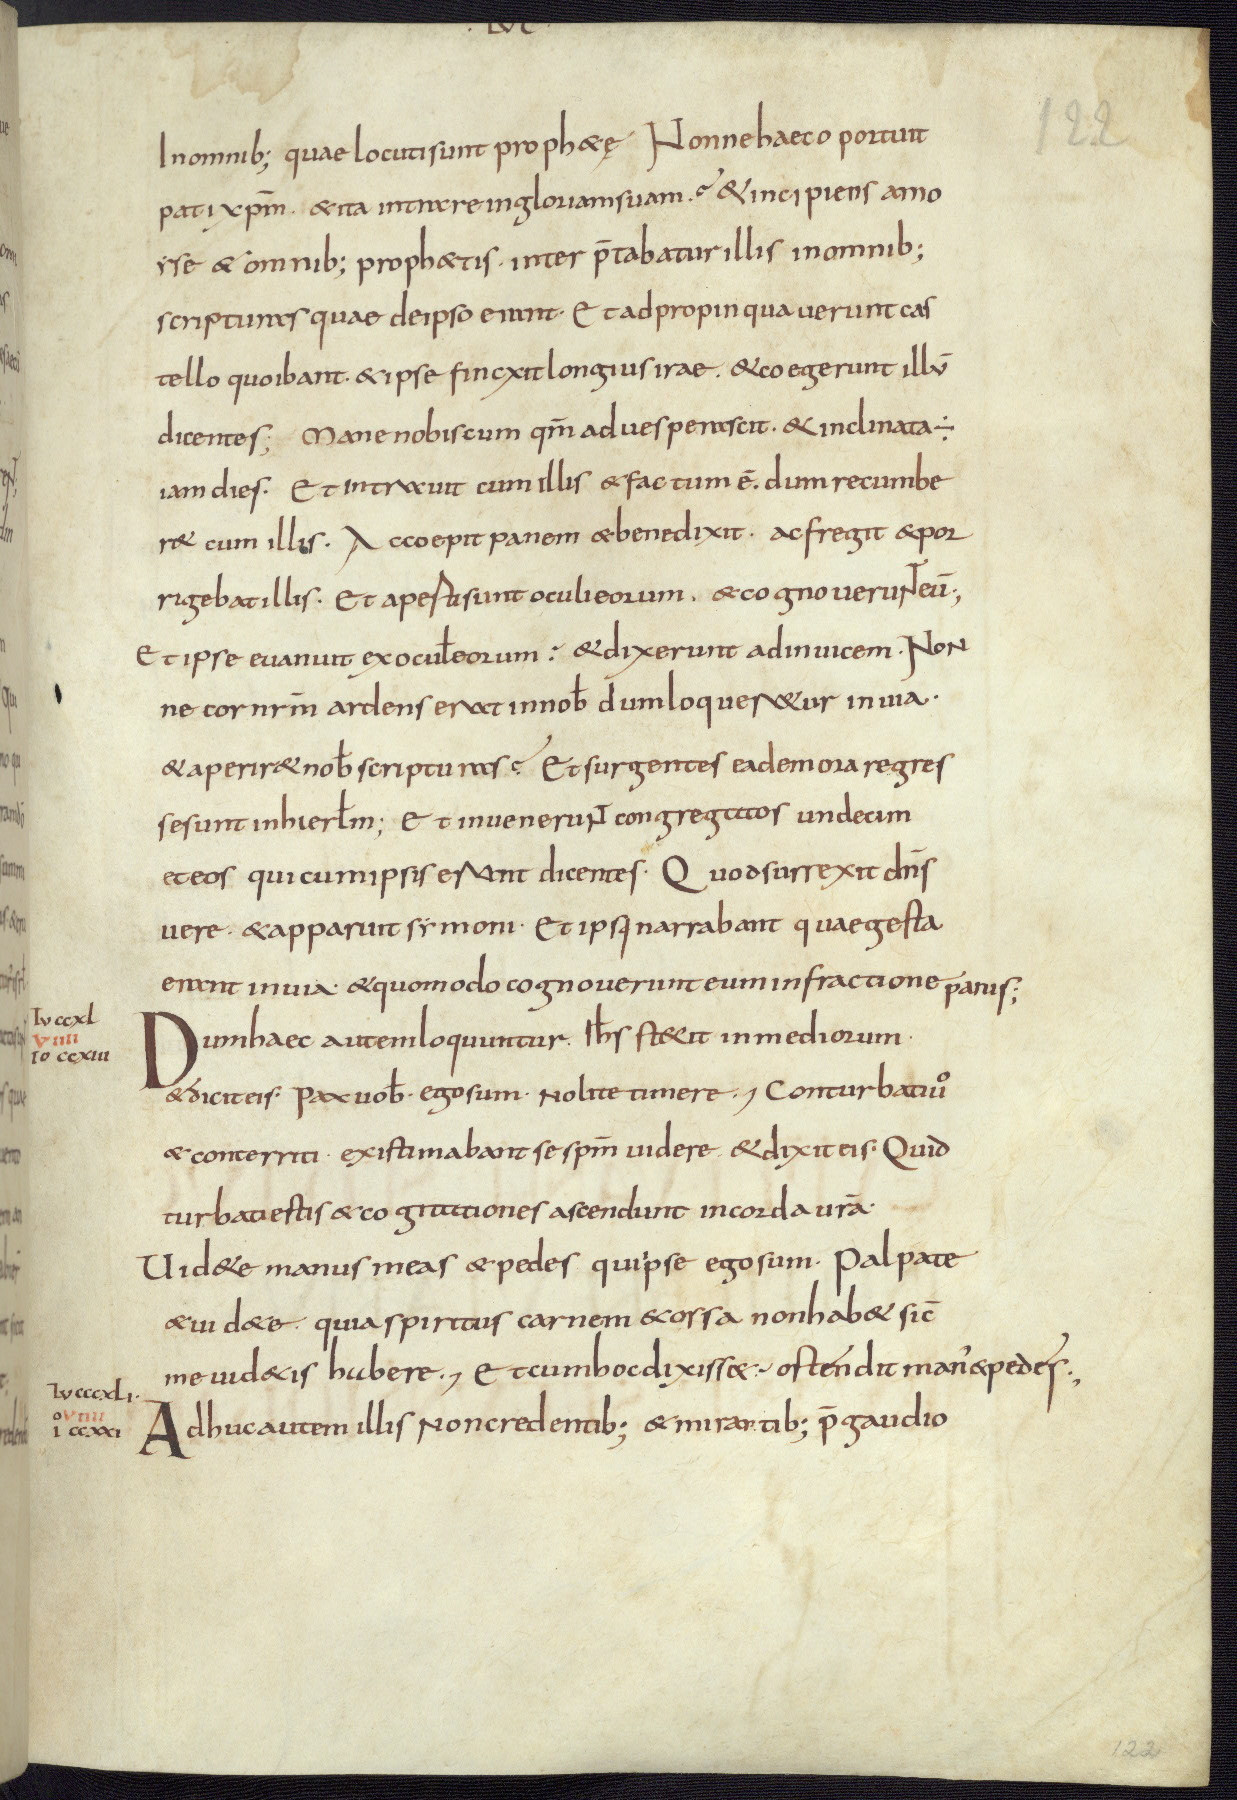 · LVC ·
122
Inomnib; quae locuti sunt prophetę Nonne haec oportuit
pati xp̄m. & ita intrare in gloriam suam. & incipiens amo
yse & omnib; proph&is. inter p̄tabatur illis in omnib;
scripturas quae de ipso erant. Et adpropinquauerunt cas
tello quo ibant. & ipse fincxit longius irae. & coegerunt illū
dicentes; Mane nobiscum qm̄ aduesperascit. & inclinata ÷
iam dies. Et intrauit cum illis & factum ē. dum recumbe
r& cum illis. Accoepit panem & benedixit. ac fregit & por
rigebat illis. Et aperti sunt oculi eorum. & cognouerunt eū.,
Et ipse euanuit ex ocul̄ eorum: & dixerunt ad inuicem. Non
ne cor nr̄m ardens erat in nob̄ dum loquer&ur in uia.
& aperir& nob̄ scripturas? Et surgentes eadem ora regres
se sunt in hierl̄m; Et inuenerunt congregatos undecim
et eos qui cum ipsis erant dicentes. Quod surrexit dn̄s
uere. & apparuit symoni. Et ipsi narrabant quae gesta
erant in uia. & quomodo cognouerunt eum in fractione panis;
Lu ccxl
Dum haec autem loquuntur. Ih̄s st&it in mediorum.
VIIII
IO ccxiii
& dicit eis. Pax uob̄. ego sum. Nolite timere., Conturbati uº
& conterriti. existimabant se sp̄m uidere. & dixit eis. Quid
turbati estis & cogitationes ascendunt in corda ur̄a.
Uid&e manus meas & pedes qui ipse ego sum. Palpate
& uid&e. quia spiritus carnem & ossa non hab& sic̄
me uid&is habere., Et cum hoc dixiss& ostendit man' & pedes.,
Lu cccxli.
Adhuc autem illis Non credentib; & mirantib; p̄ gaudio
VIIII
io ccxxi
122